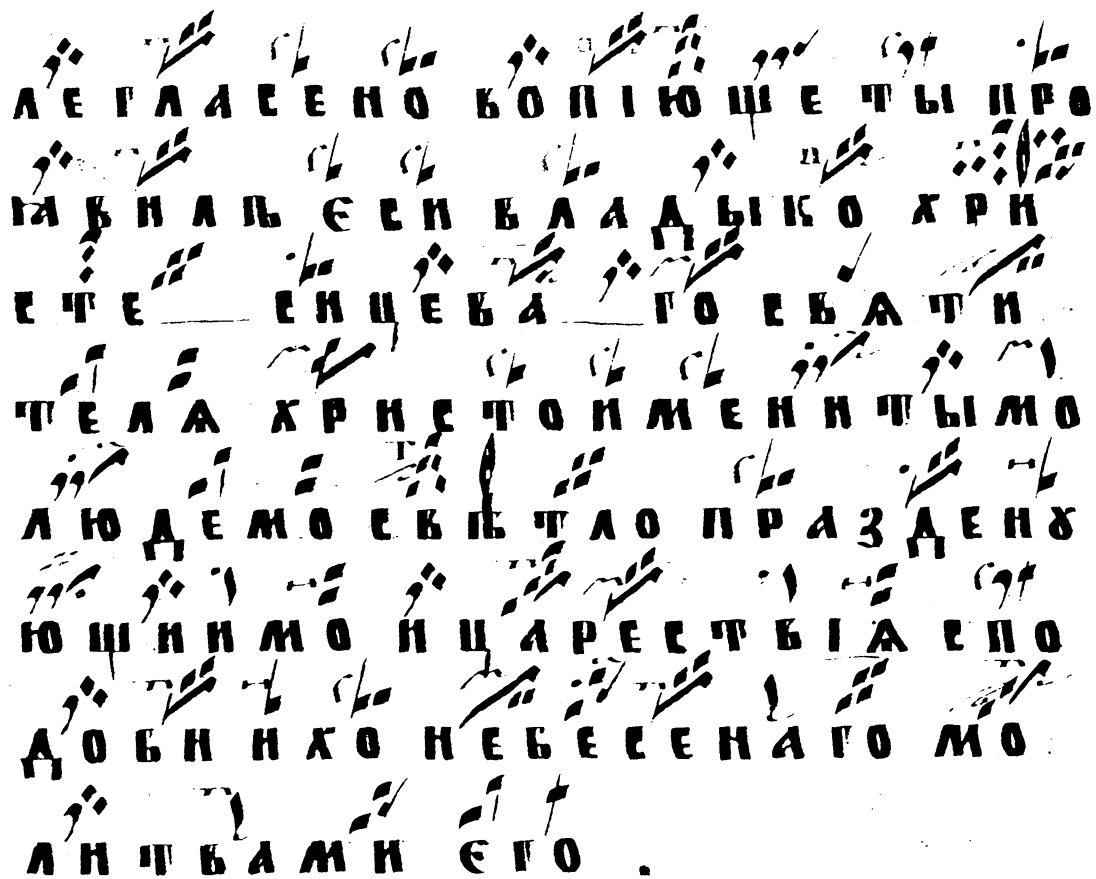 легласено вопіюще ты про
ꙗвилъ єси владыко хри
сте сицева го свѧти
телѧ христоименитымо
людемо свѣтло празденꙋ
ющимо и царествыѧ спо
доби ихо небеснаго мо
литвами єго.